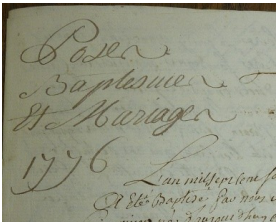 Poser
Baptesme
Et Mariage
1776
L'an mil sept cent
A Eté Baptisé par nous